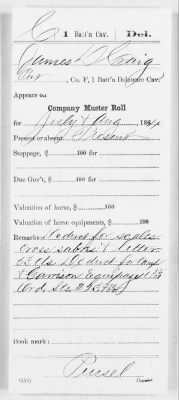 C | 1 Batt'n Cav. | Del.
James D Craig
Pvt, Co. F, 1 Batt'n Delaware Cav.
Appears on
Company Muster Roll
for July & Aug, 1864
Present or absent Present
Stoppage, $ 100 for
Due Gov't, $ 100 for
Valuation of horse, $ 100
Valuation of horse equipments, $ 100
Remarks: Deduct for
cross sabres & letter
53 cts Deduct for Camp
& Garrison Equipage
Ord. Sts $
Book mark:
(358) Copyist.